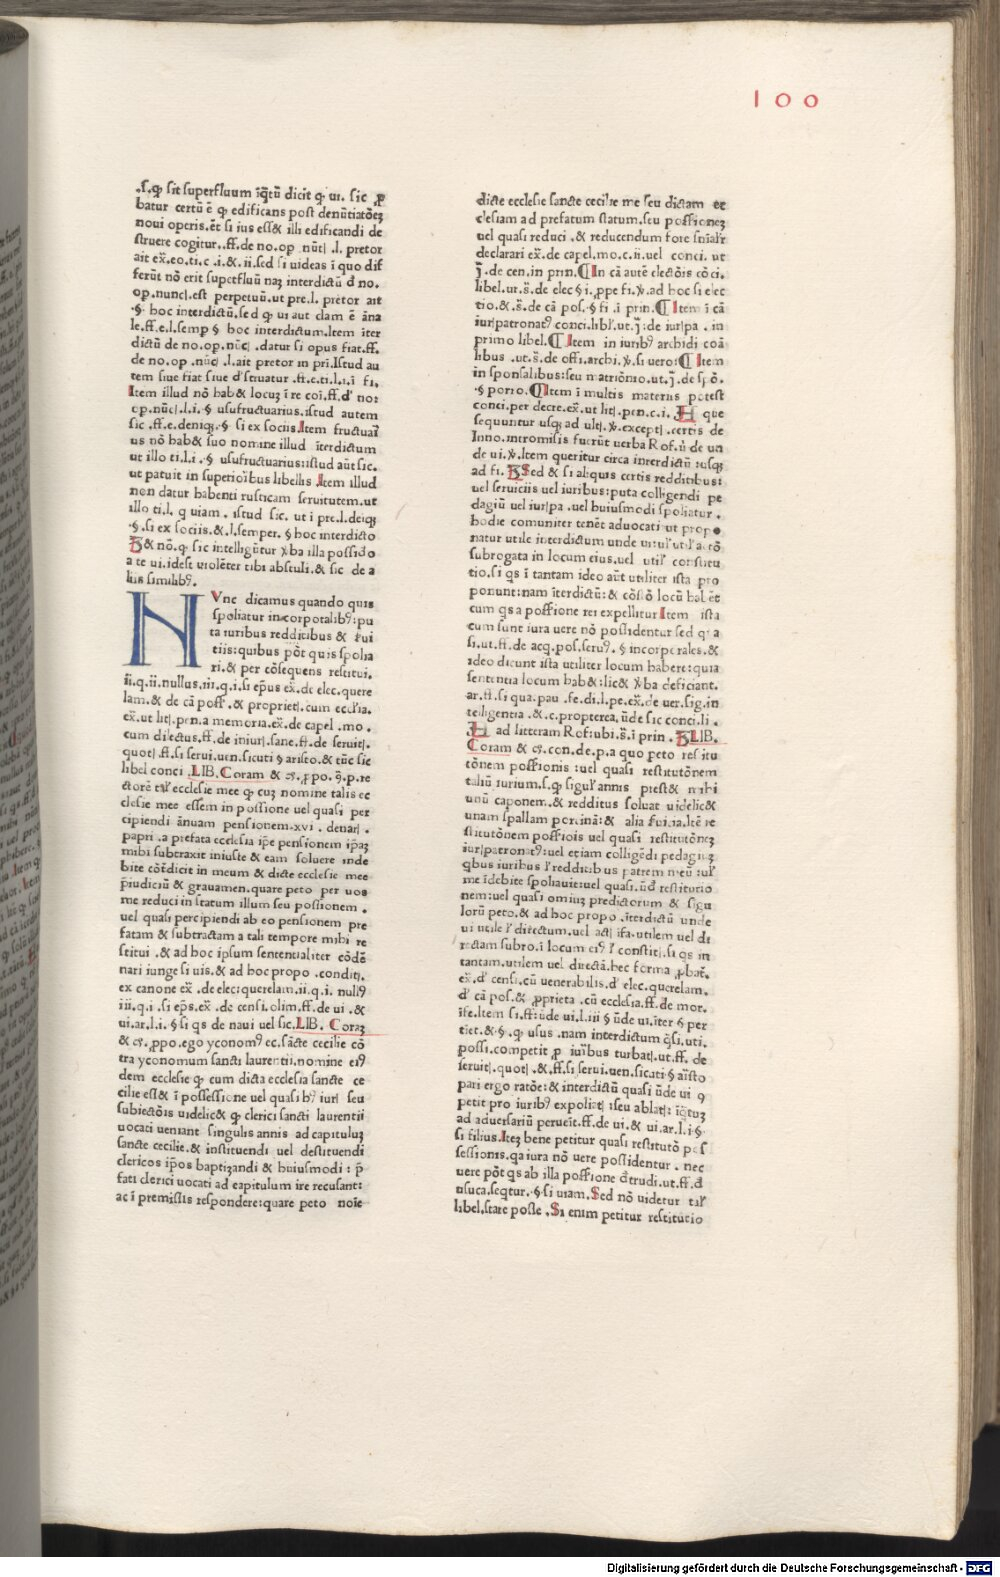 100
.s. ꝙ sit superfluum īq̄tū dicit ꝙ ui. sic ꝓ
batur certū ē ꝙ edificans post denūtiatōeȝ
noui operis. ēt si ius ess& illi edificandi de
struere cogitur. ff. de no. op nūt. l. pretor
ait ex̄. eo. ti. c .i. & .ii. sed si uideas ī quo dif
ferūt nō erit supetfluū naȝ interdictū d no.
op. nunc. est perpetuū. ut pre. l. pretor ait
.§. hoc interdictū. sed ꝙ ui aut clam ē āna
le. ff. e. l. semp § hoc interdictum. Item iter
dictū de no. op. nūc. .datur si opus fiat. ff.
de no. op .nūc .l. ait pretor in pri. Istud au
tem siue fiat siue d'struatur .ff. e. ti. l. i. ī fi.
Item illud nō hab& locuȝ ī re coī. ff. d' no:
op. nūc. l. i. § usufructuarius. istud autem
sic .ff. e. deniqȝ. § si ex sociis Item fructuari
us nō hab& suo nomine illud īterdictum
ut illo ti. l. i .§ usufructuarius: istud aūt sic.
ut patuit in superioibus libellis Item illud
non datur habenti rusticam seruitutem. ut
illo ti. l. q uiam . istud sic. ut ī pre. l. deiqȝ
.§. si ex sociis. &. l. semper. § hoc interdicto
& nō. ꝙ sic intelligūtur ꝟba illa possido
a te ui. idest uiolēter tibi abstuli. & sic de a
liis similibꝰ.
NVnc dicamus quando quis
spoliatur incorporalibꝰ: pu
ta iuribus redditibus & ſui
tiis: quibus pōt quis spolia
ri. & per cōsequens restitui.
ii. q. ii. nullus. iii. q. i. si ep̄us ex̄. de elec. quere
lam. & de cā poss. & propriet. cum eccl'ia.
ex̄. ut lit. pen. a memoria. ex̄. de capel .mo .
cum dilectus. ff. de iniur. sane. ff. de seruit.
quot. ff. si serui. uen. sicuti § aristo. & tūc sic
libel conci .LIB. Coram & c. ꝓpo. ꝯ. p. re
ctorē tal' ecclesie mee ꝙ cuȝ nomine talis ec
clesie mee essem in possione uel quasi per
cipiendi ānuam pensionem. xvi . denar .
papri .a prefata ecclesia ip̄e pensionem ip̄aȝ
mibi subtraxit iniuste & eam soluere inde
bite cōtdicit in meum & dicte ecclesie mee
p̄iudiciū & grauamen. quare peto per uos
me reduci in statum illum seu possionem .
uel quasi percipiendi ab eo pensionem pre
fatam & subtractam a tali tempore mibi re
stitui . & ad hoc ipsum sententialiter cōdē
nari iunge si uis. & ad hoc propo .condit.
ex canone ex̄. de elec: querelam. ii. q. i. nullꝰ
iii. q. i .si ep̄s. ex̄ .de censi. olim. ff. de ui . &
ui. ar. l. i. § si qs de naui uel sic. LIB. Coraȝ
& c. ꝓpo. ego yconomꝰ ec. sācte cecilie cō
tra yconomum sancti laurentii. nomine eiꝰ
dem ecclesie ꝙ cum dicta ecclesia sancte ce
cilie ess& ī possessione uel quasi bꝰ iuri seu
subiectōis uidelic& ꝙ clerici sancti laurentii
uocati ueniant singulis annis ad capituluȝ
sancte cecilie. & instituendi uel destituendi
clericos ip̄os baptizandi & huiusmodi : p̄
fati clerici uocati ad capitulum ire recusant:
ac ī premissis respondere: quare peto noīe
dicte ecclesie sancte cecilie me seu dictam ec
clesiam ad prefatum statum. seu possioneȝ
uel quasi reduci .& reducendum fore sn̄ialr
declarari ex̄. de capel. mo. c. ii. uel conci. ut
j̄. de cen. in prin. ¶ In cā autē electōis cōci.
libel. ut. s̄. de elec § i. ꝓpe fi. ꝟ. ad hoc si elec
tio. &. s̄. de cā pos. § fi .ī prin. ¶ Item ī cā
iur patronatꝰ conci. libl'. ut. j̄. de iur pa . in
primo libel. ¶ Item in iuribꝰ archidi coā
libus .ut. s̄. de offi. archi. ꝟ. si uero: ¶ Item
in sponsalibus: seu matriōnio. ut. j̄. de spō.
.§ porro. ¶ Item ī multis materiis potest
conci. per decre. ex̄. ut lit. pen. c. i. que
sequuntur usqȝ ad ult. ꝟ. except. certis de
Inno. intromisis fuerūt uerba Rof. ū de un
de ui. ꝟ. Item queritur circa interdictū : usqȝ
ad fi. Sed & si aliquis certis redditibus:
uel seruiciis uel iuribus: puta colligendi pe
dagiū uel iur pa . uel huiusmodi spoliatur .
hodie comuniter tenēt aduocati ut propo
natur utile interdictum unde ui: ul' util' actō
subrogata in locum eius. uel util' constitu
tio. si qs ī tantam ideo aūt utiliter ista pro
ponunt: nam īterdictū: & cōsō locū hab ēt
cum qs a possione rei expellitur Item ista
cum sunt iura uere nō possidentur sed q̄ a
si. ut. ff. de acq. pos. seruꝰ. § incorporales. &
ideo dicunt ista utiliter locum habere: quia
sententia locum hab&: lic& ꝟba deficiant.
ar. ff. si qua. pau .fe. di. l. pe. ex̄. de uer. sig. in
telligentia .& .c. propterea. ūde sic conci. li .
ad litteram Rof: ubi. s̄. ī prin . LIB.
Coram & c. con. de. p. a quo peto restitu
tōnem possionis : uel quasi restitutōnem
taliū iurium. s. ꝙ sigul' annis prest& mibi
unū caponem. & redditus soluat uidelic&
unam spallam porcinā: & alia ſuitia. Itē re
stitutōnem possiois uel quasi restitutōneȝ
iur patronatꝰ: uel etiam colligēdi pedagiuȝ
qbus iuribus l' redditibus patrem meū : ul'
me īdebite spoliauit: uel quasi. ūd restitutio
nem: uel quasi omiuȝ predictorum & sigu
lorū peto. & ad hoc propo .īterdictū unde
ui utile l' directum. uel act ifa. utilem uel di
rectam subro. ī locum eiꝰ l' constit. si qs in
tantam. utilem uel directā. hec forma ꝓbat.
ex̄. d' censi. cū uenerabilis. d' elec. querelam.
d' cā pos. & ꝓprieta .cū ecclesia. ff. de mor.
ife. Item si. ff: ūde ui. l. iii § ūde ui. iter § per
tiet. & §. ꝙ usus .nam interdictum q̄si. uti.
possi. competit ꝓ iuribus turbat. ut. ff. de
seruit. quot . &. ff. si serui. uen. sicati § aristo
pari ergo ratōe: & interdictū quasi ūde ui ꝯ
petit pro iuribꝰ expoliat : seu ablat: īq̄tuȝ
ad aduersariū perueīt. ff. de ui. & ui. ar. l. i. §
si filius. Iteȝ bene petitur quasi restitutō pos
sessionis. qa iura nō uere possidentur . nec
uere pōt qs ab illa possione d̄trudi. ut. ff. d
usuca. seqtur. .§. si uiam. Sed nō uidetur tal'
libel. stare posse . Si enim petitur restitutio
Digitalisierung gefördert durch die Deutsche Forschungsgemeinschaft - DFG